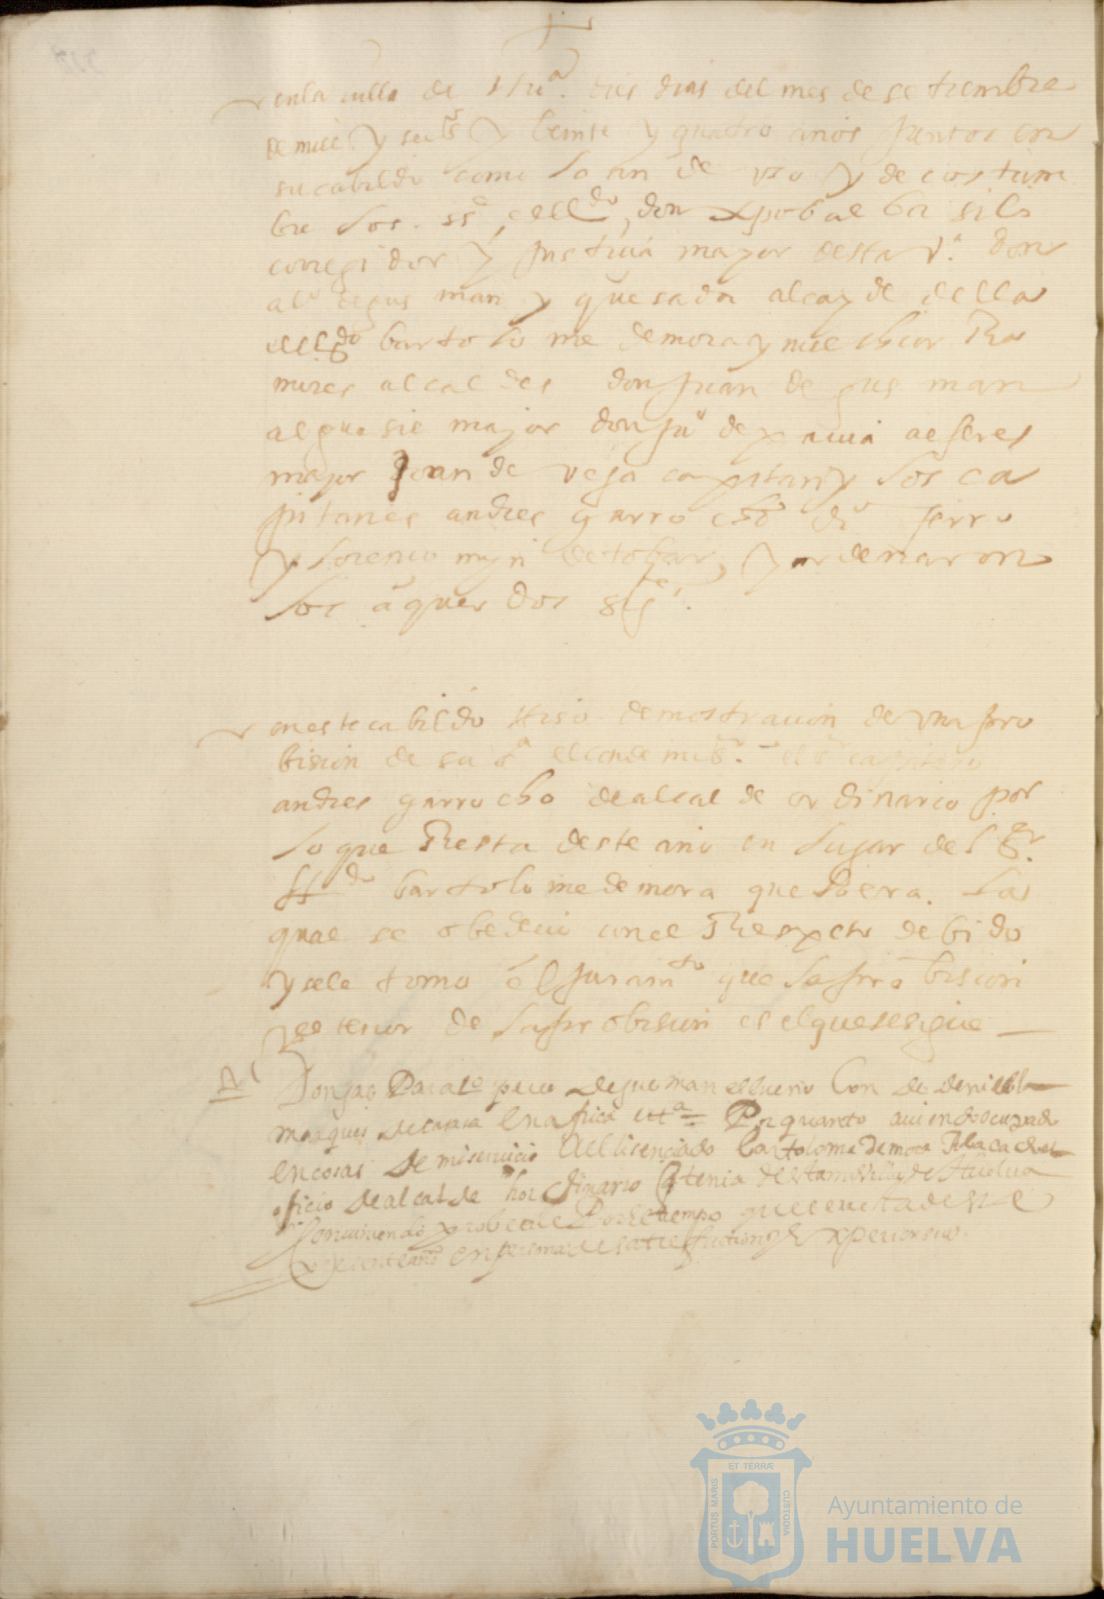 en la villa de Huª. dies dias del mes de setiembre
de mill y seisºs y beinte y quatro años juntos en
su cabildo como lo an de uso y de costum
bre los. ssᵉˢ, el lldº, don xpobal ba silo
corregidor y justicia mayor desta vª. don
alº de gus man y quesada alcayde della
el lldº bartolo me de mora y melchior Ra
mires alcal des don juan de gus man
alguasil major don juº de alferes
major Joan de vega capitan y los ca
pitanes andres garrocho dº
y lorenco de tobar, y ordenaron
los aquer dos sigˢ.
en este cabildo Hiso demostracion de una pro
bision de su sª el conde mi sʳ. el sʳ capitan
andres garrocho de alcal de ordinario por
lo que Resta deste año en lugar del sʳ.
lldº bartolo me de mora que lo era. La
qual se obedecio con el Respeto debido
y se le tomo el juramtº que la pro bision
el tenor de la probision es el que se sigue
Don de guzman el bueno Conde de niebla
marques de casasa en africa etª = Por quanto aviendo ocupado
en cosas de mi servicio Al licenciado bartolome de mora la ca
oficio de alcalde hordinario q tenia desta mi villa de Huelva
Conviniendo probeerle Por el tiempo que resta deste
presente año en persona de satisfaction y experiencia.
PORTUS MARIS
ET TERRÆ
CUSTODIA
Ayuntamiento de
HUELVA